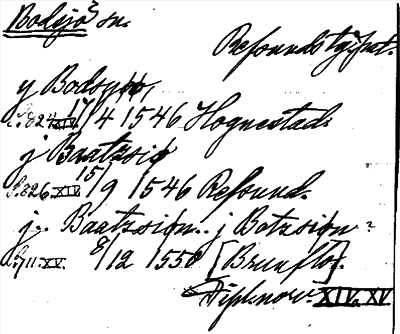 Bodsjö sn.
Refsunds tg, Jmt.
y Bodsyøø,
s. 824 XIV. 17/4 1546 Hognestad.
j Baatzsiø
s. 826 XIV. 15/9 1546 Refsund.
j.. Baatzsiøn.. j Botzsiøn
s. 711. XV. 8/12 1550 [Brunflo].
Dipl. norv. XIV. XV